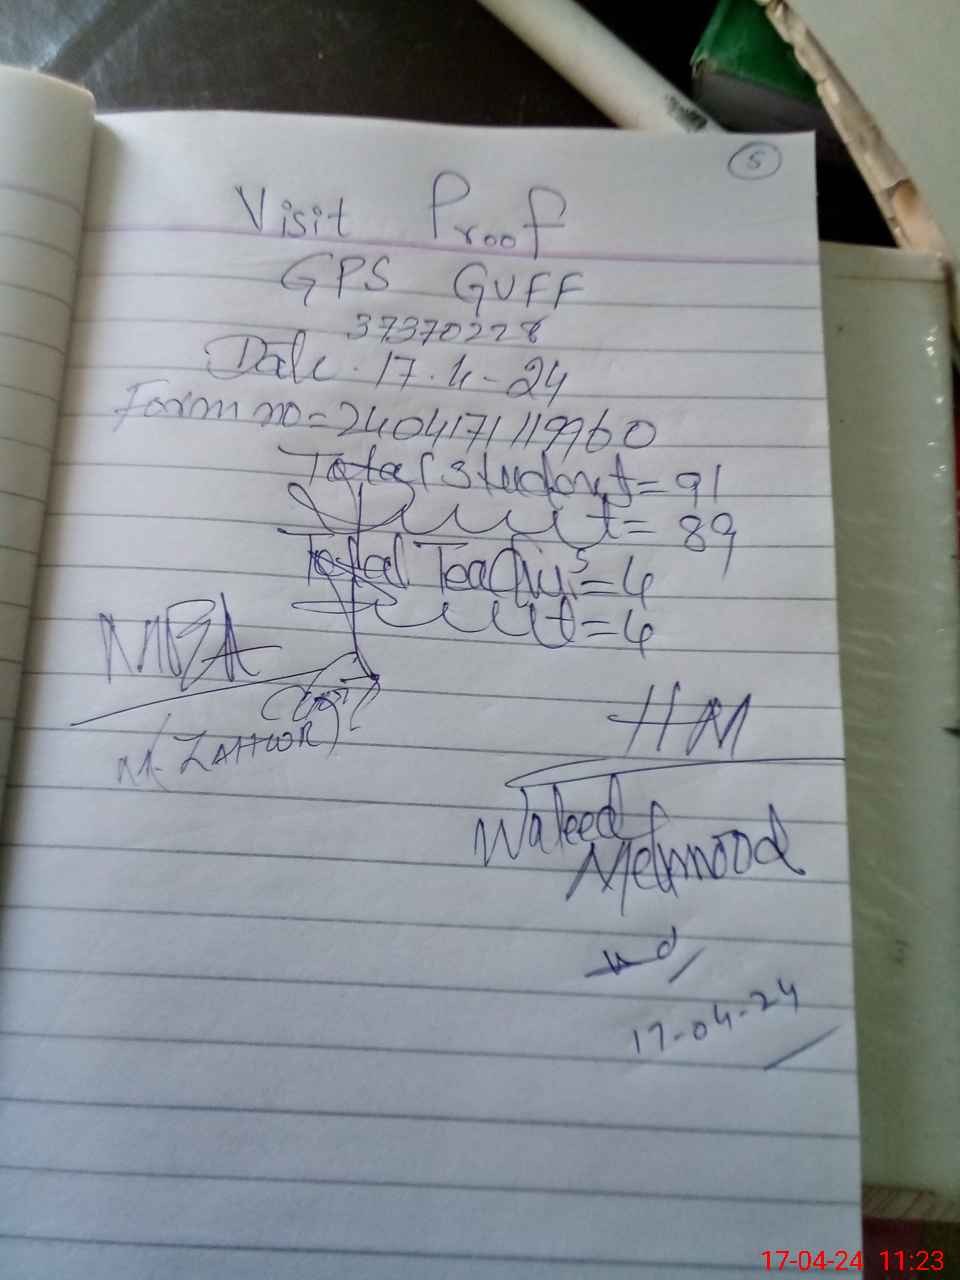 5
Visit Proof
GPS GUFF
37370228
Date. 17.4-24
Form no=2404171119960
Total student=91
Present=89
Total Teachers=4
Present=4
HM
(M. ZAHOOR)
Waleed
Mehmood
17-04-24
17-04-24 11:23